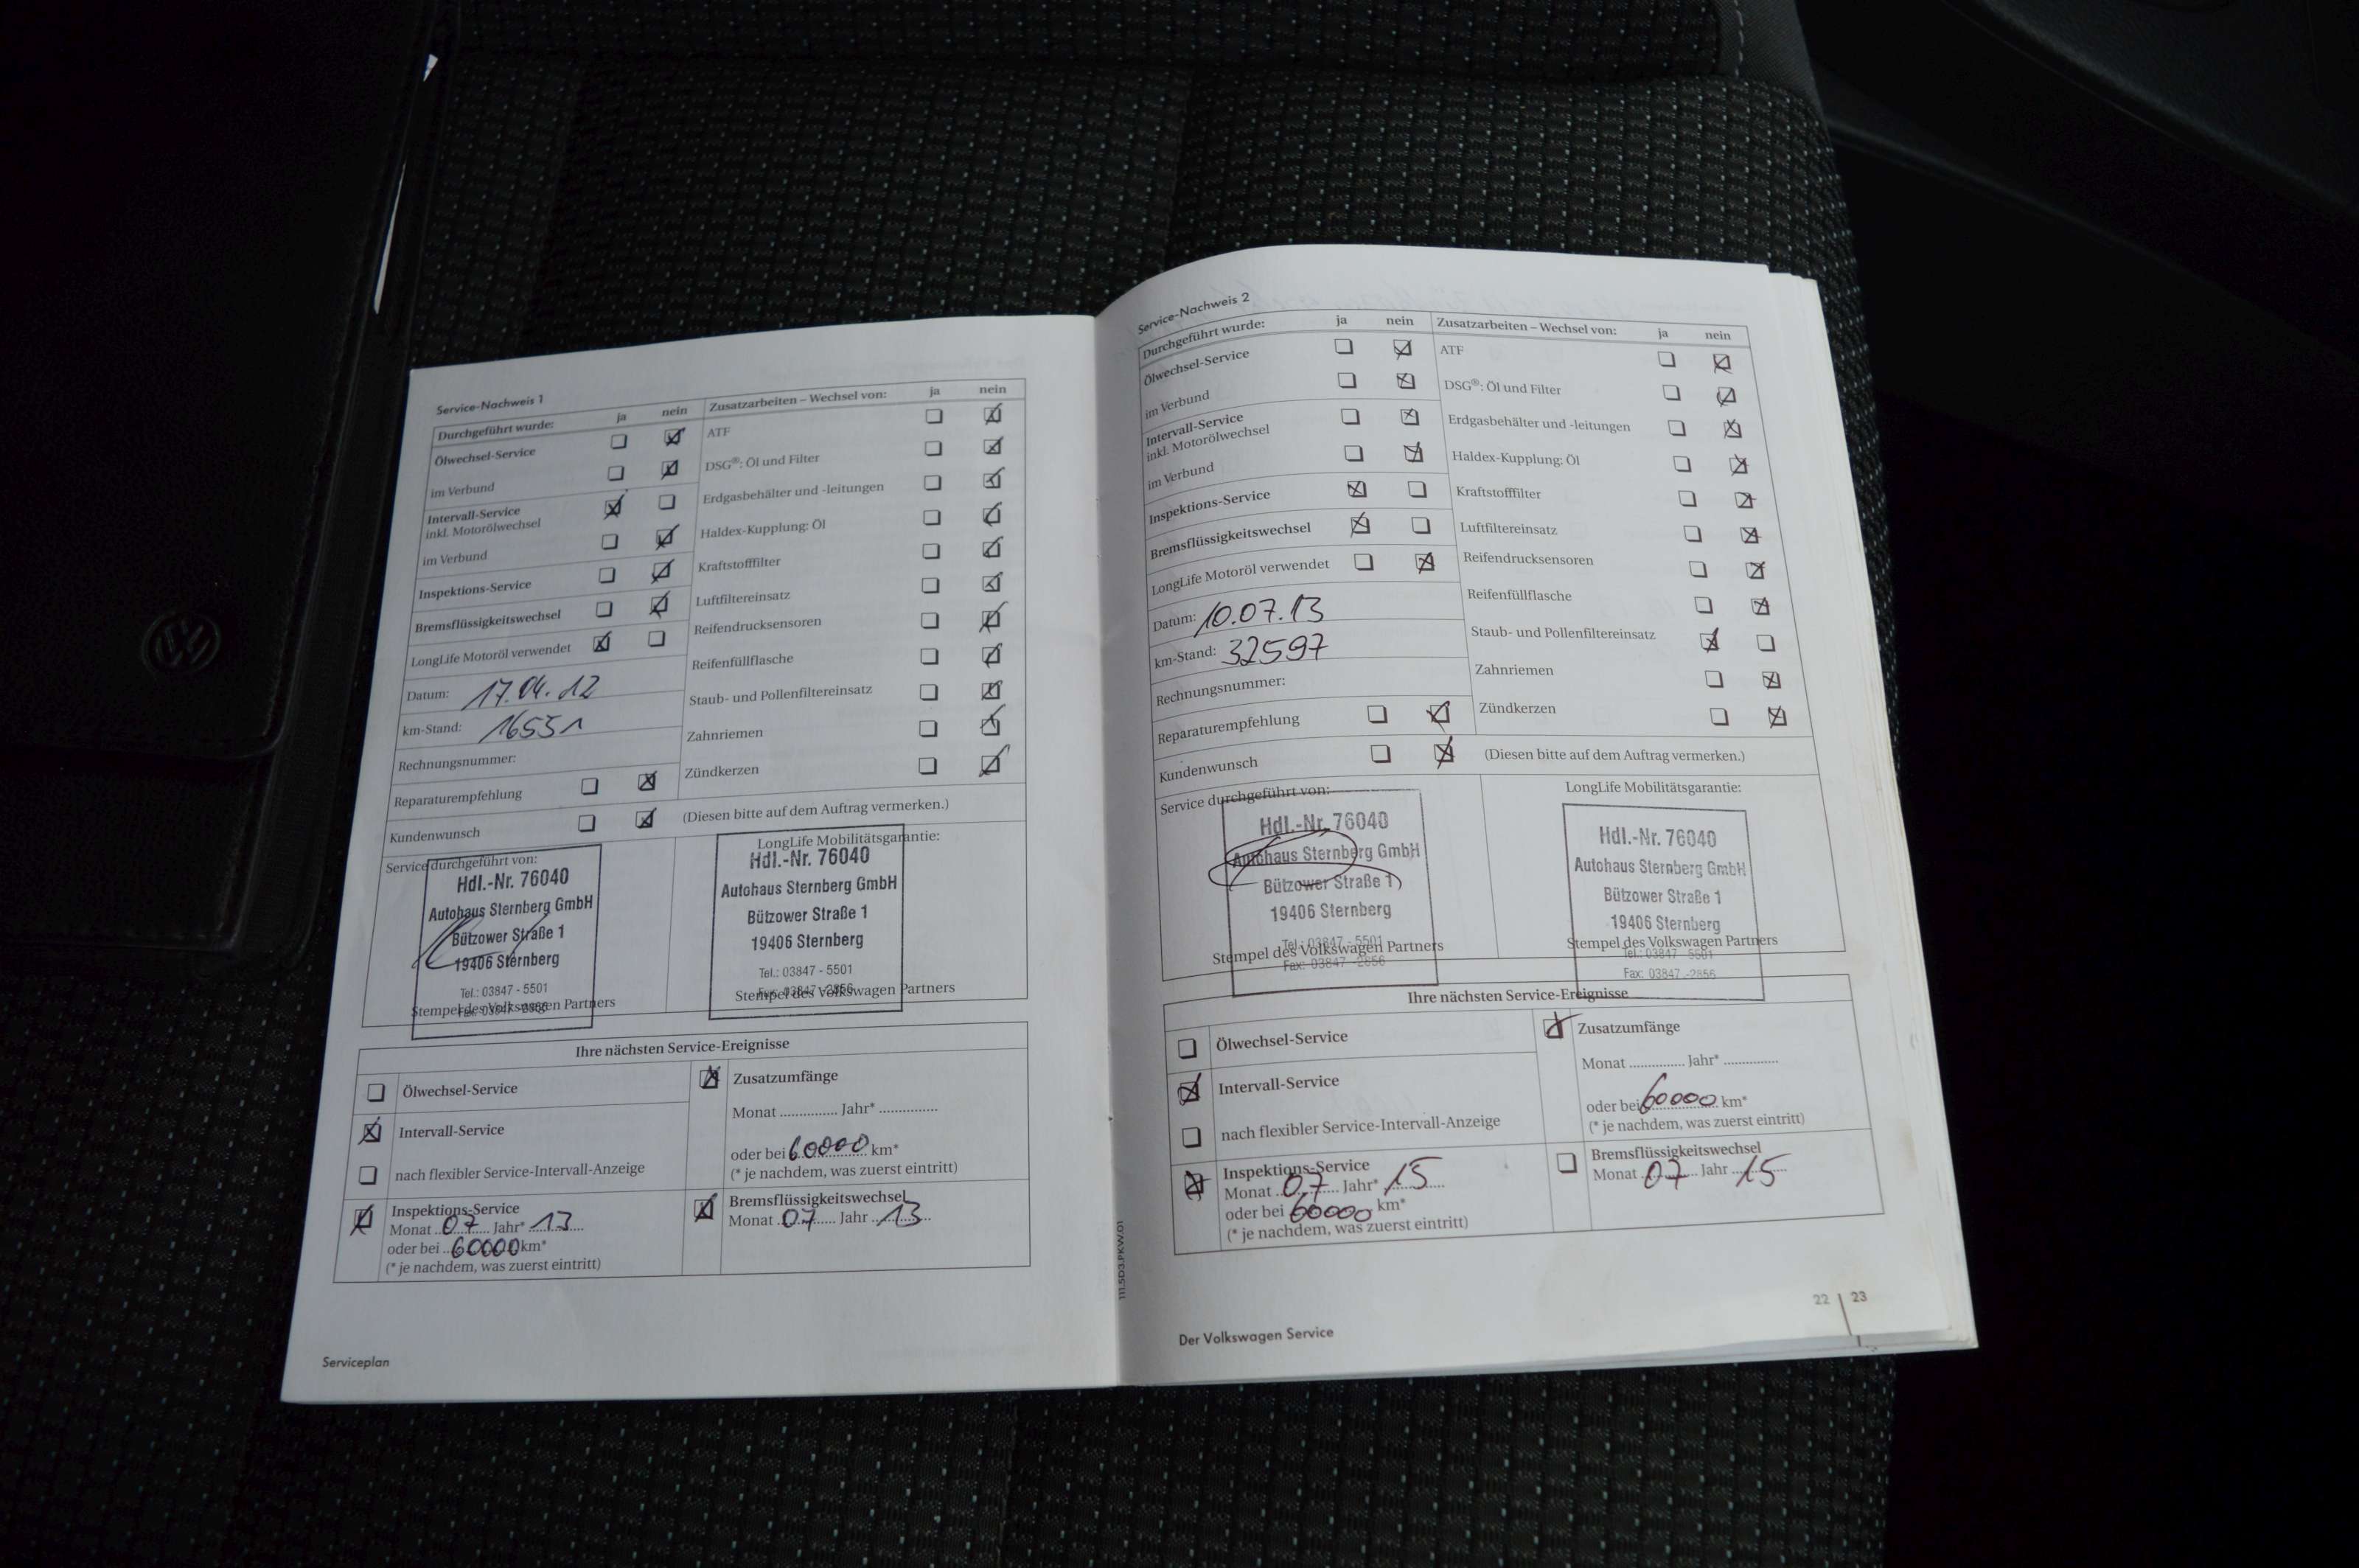 Service-Nachweis 1
Durchgeführt wurde: ja nein Zusatzarbeiten – Wechsel von: ja nein
Ölwechsel-Service ATF
im Verbund DSG®: Öl und Filter
Intervall-Service Erdgasbehälter und -leitungen
inkl. Motorölwechsel
im Verbund Haldex-Kupplung: Öl
Inspektions-Service Kraftstofffilter
Bremsflüssigkeitswechsel Luftfiltereinsatz
LongLife Motoröl verwendet Reifendrucksensoren
Datum: 17.04.12 Reifenfüllflasche
km-Stand: 16531 Staub- und Pollenfiltereinsatz
Rechnungsnummer: Zahnriemen
Reparaturempfehlung Zündkerzen
Kundenwunsch (Diesen bitte auf dem Auftrag vermerken.)
Service durchgeführt von: LongLife Mobilitätsgarantie:
Hdl.-Nr. 76040 Hdl.-Nr. 76040
Autohaus Sternberg GmbH Autohaus Sternberg GmbH
Bützower Straße 1 Bützower Straße 1
19406 Sternberg 19406 Sternberg
Tel.: 03847 - 5501 Tel.: 03847 - 5501
Fax: 03847 -2856 Fax: 03847 -2856
Stempel des Volkswagen Partners Stempel des Volkswagen Partners
Ihre nächsten Service-Ereignisse
Ölwechsel-Service Zusatzumfänge
Monat ............... Jahr* ...............
Intervall-Service
oder bei 60000 km*
nach flexibler Service-Intervall-Anzeige (* je nachdem, was zuerst eintritt)
Inspektions-Service Bremsflüssigkeitswechsel
Monat 07 Jahr* 13 Monat 07 Jahr 13
oder bei 60000 km*
(* je nachdem, was zuerst eintritt)
Serviceplan
Service-Nachweis 2
Durchgeführt wurde: ja nein Zusatzarbeiten – Wechsel von: ja nein
Ölwechsel-Service ATF
im Verbund DSG®: Öl und Filter
Intervall-Service Erdgasbehälter und -leitungen
inkl. Motorölwechsel
im Verbund Haldex-Kupplung: Öl
Inspektions-Service Kraftstofffilter
Bremsflüssigkeitswechsel Luftfiltereinsatz
LongLife Motoröl verwendet Reifendrucksensoren
Datum: 10.07.13 Reifenfüllflasche
km-Stand: 32597 Staub- und Pollenfiltereinsatz
Rechnungsnummer: Zahnriemen
Reparaturempfehlung Zündkerzen
Kundenwunsch (Diesen bitte auf dem Auftrag vermerken.)
Service durchgeführt von: LongLife Mobilitätsgarantie:
Hdl.-Nr. 76040 Hdl.-Nr. 76040
Autohaus Sternberg GmbH Autohaus Sternberg GmbH
Bützower Straße 1 Bützower Straße 1
19406 Sternberg 19406 Sternberg
Tel.: 03847 - 5501 Tel.: 03847 - 5501
Stempel des Volkswagen Partners Stempel des Volkswagen Partners
Fax: 03847 -2856 Fax: 03847 -2856
Ihre nächsten Service-Ereignisse
Ölwechsel-Service Zusatzumfänge
Monat ............... Jahr* ...............
Intervall-Service
oder bei 60000 km*
nach flexibler Service-Intervall-Anzeige (* je nachdem, was zuerst eintritt)
Inspektions-Service Bremsflüssigkeitswechsel
Monat 07 Jahr* 15 Monat 07 Jahr 15
oder bei 60000 km*
(* je nachdem, was zuerst eintritt)
111.5D3.PKW.01
22 | 23
Der Volkswagen Service